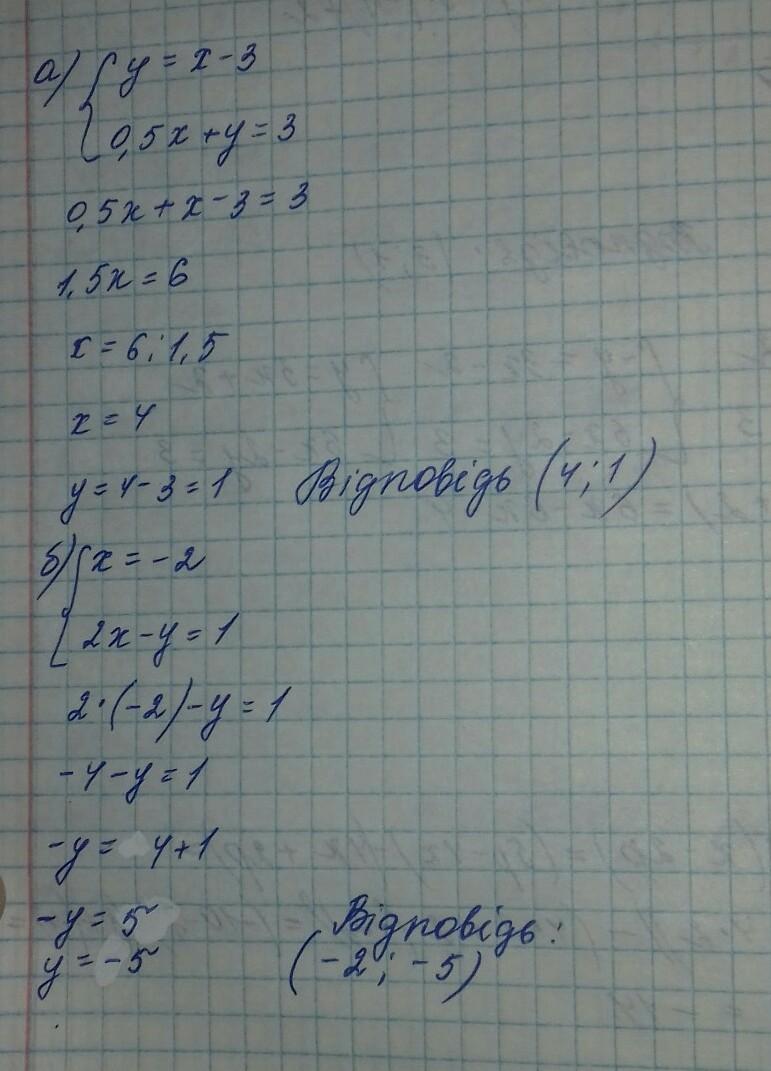 а) { y = x - 3
0,5x + y = 3
0,5x + x - 3 = 3
1,5x = 6
x = 6 : 1,5
x = 4
y = 4 - 3 = 1 Відповідь (4; 1)
б) { x = -2
2x - y = 1
2 · (-2) - y = 1
-4 - y = 1
-y = 4 + 1
-y = 5 Відповідь:
y = -5 (-2; -5)